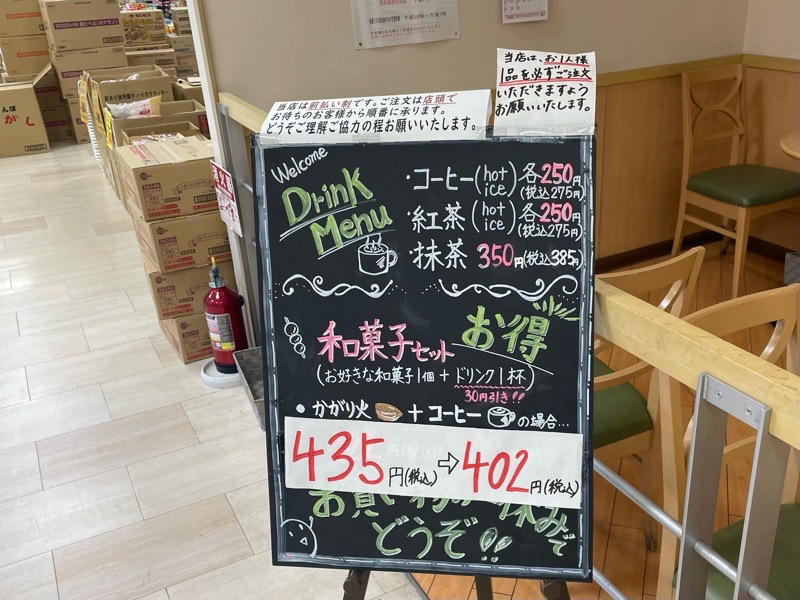 当店は、お1人様
1品を必ずご注文
いただきますよう
お願いいたします。
当店は前払い制です。ご注文は店頭で
お待ちのお客様から順番に承ります。
どうぞご理解ご協力の程お願いいたします。
Welcome
Drink
Menu
・コーヒー(hot ice)各250円
(税込275円)
・紅茶(hot ice)各250円
(税込275円)
・抹茶 350円(税込385円)
和菓子セット お得
(お好きな和菓子1個+ドリンク1杯)
30円引き!!
● かがり火 + コーヒー の場合…
435円(税込)⇨402円(税込)
どうぞ!!